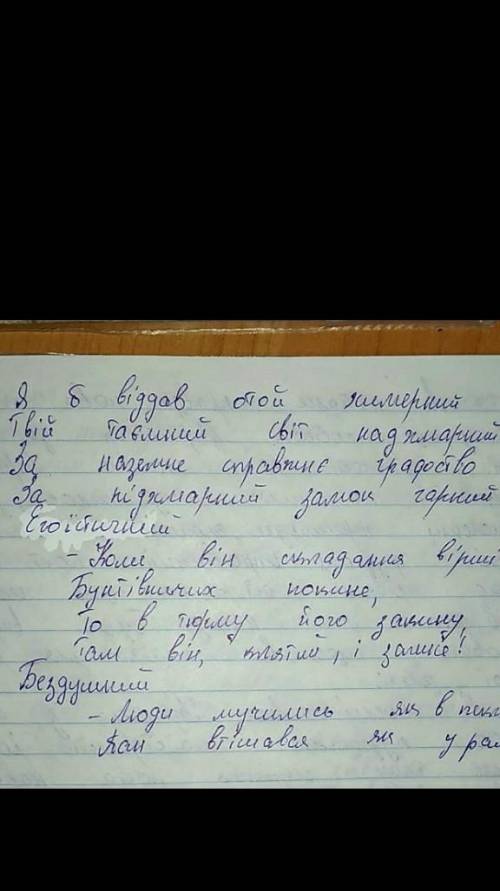 Я б віддав отой химерний
Твій таємний світ надхмарний
За наземне справжнє градоство
За підхмарний замок гарний
Егоїстичний
- Коли він складання вірші
Бунтівничих покине,
То в тюрму його закину,
Там він, клятий, і загине!
Бездушний
- Люди мучились як в пекл
Пан втішався як у раю